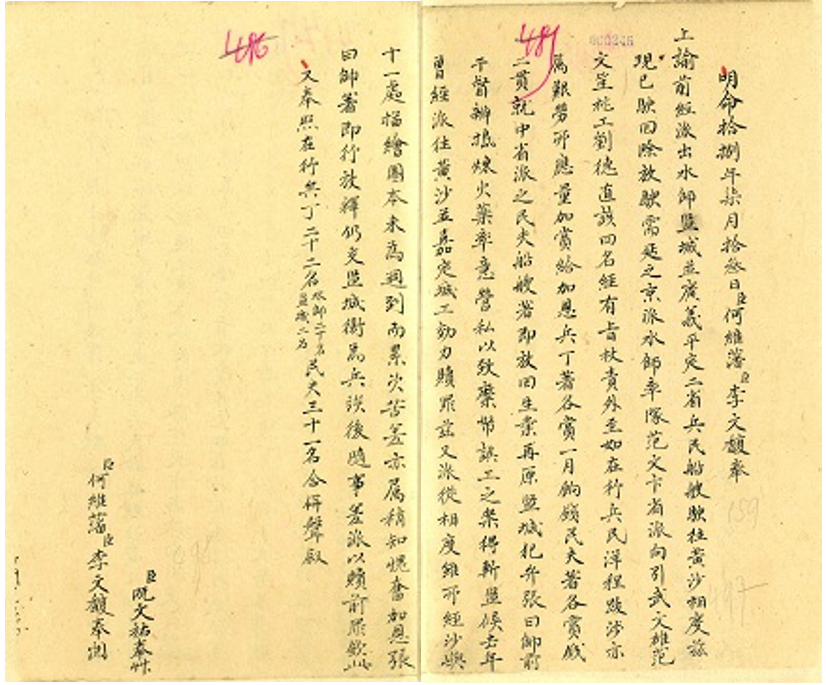 明命拾捌年柒月拾叁日臣何維藩臣李文馥奉
上諭前經派出水師監城並廣義平定二省兵民船艘駛往黃沙相度茲
現已駛回除放駛需延之京派水師率隊范文卞省派向引武文雄范
文笙柁工劉德直該四名經有旨杖責外至如在行兵民洋程跋涉亦
屬艱勞所應量加賞給加恩兵丁著各賞一月餉錢民夫著各賞錢
二貫就中省派之民夫船艘著即放回生業再原監城犯弁張曰帥前
干督辦搗煉火藥率意營私以致弊誤工之案得斬監候去年
曾經派往黃沙並嘉定城工効力贖罪茲又派從相度雖所經沙嶼
十一處描繪圖本未為週到而累次苦差亦屬稍知愧奮加恩張
曰帥著即行放釋仍交監城衛為兵俟後隨事差派以贖前罪欽此
又奉照在行兵丁二十二名水師二十名監城二名民夫三十一名合併聲敘
臣阮文祐奉艸
臣何維藩臣李文馥奉閱
486
000246
159